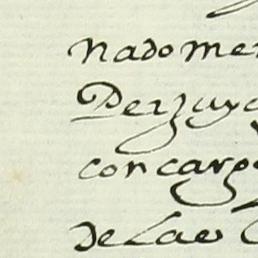 nadomen
Perzuyo
concarg
delas C